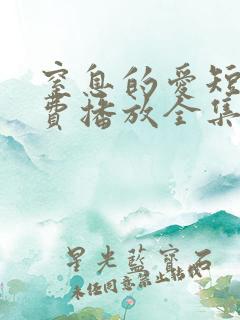 窒息的愛短
費播放全集
星光藍寶石
未經同意禁止轉載